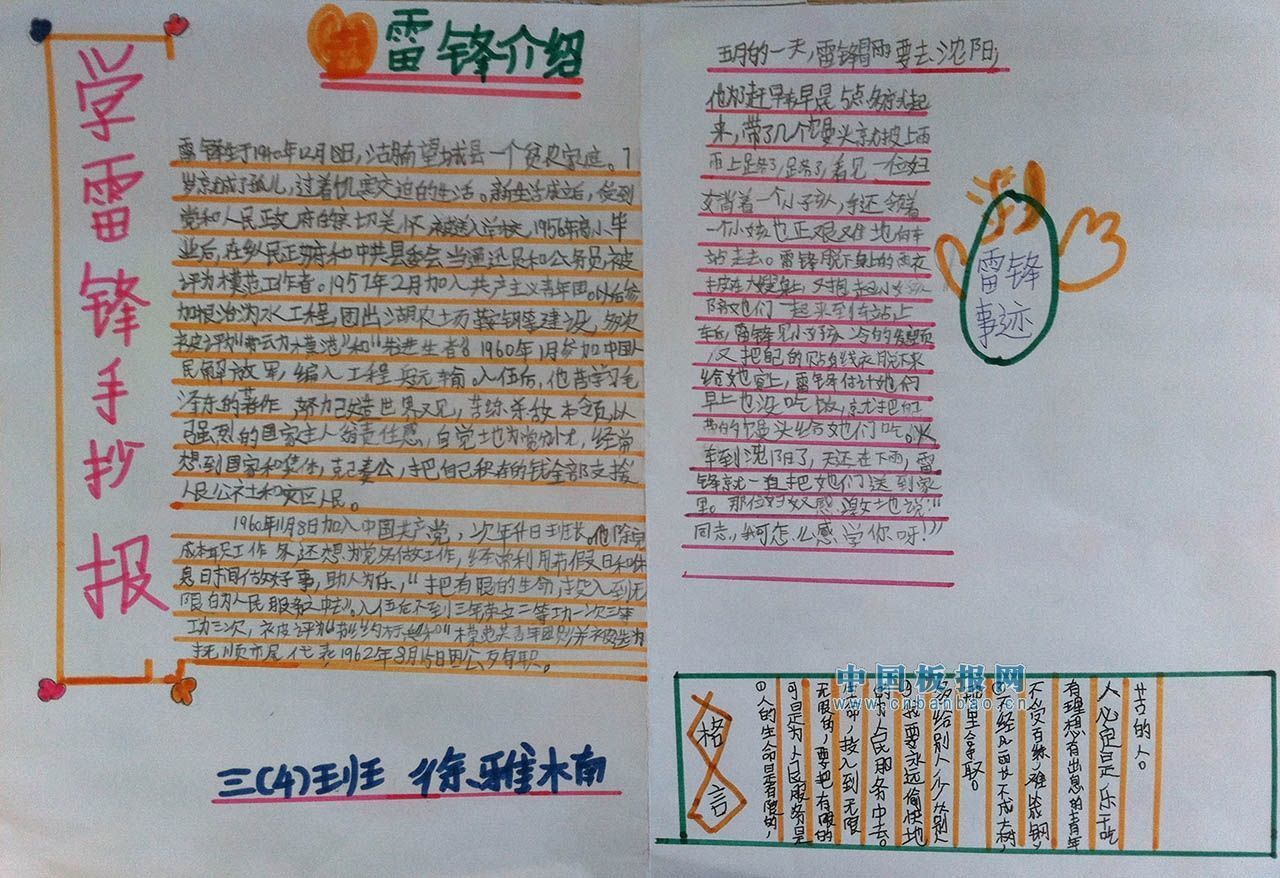 学雷锋手抄报
雷锋介绍
雷锋生于1940年12月18日,沽腩望城县一个贫农家庭。7
岁京成了孤儿,过着饥寒交迫的生活。新生活成立后,受到
党和人民正政府的亲切关怀被送入学校,1956年高小毕
业后,在乡人民正府和中共县委会当通迅员和公务员,被
评为模范工作者。1957年2月加入共产主义青年团。
加根治沩水工程,团出湖农土场鞍钢等建设,多次
1960年1月参加中国人
民解放军,编入工程
入伍后,他苦学习毛
泽东的著作,努力改造世界又见,苦练杀敌本领,以
强烈的国家主人翁责任感,自觉地为党分忧,经常
想到国家和集体,克己奉公,把自己积存的钱全部支援
人民公社土和灾区人民。
1960年11月8日加入中国共产党,次年升日班长。他除完
成本职工作务,还想为党多做工作,经常利用节假日和休
息日时间做好事,助人为乐,“把有限的生命,投入到无
限的为人民服务之中去》。入伍后不到三年荣立二等功一次三等
功三次,被评为
抚顺市
代表,1962年8月15日因公殉职。
三(4)班 徐雅木南
五月的一天,雷锋冒雨要去沈阳,
他为赶早车早晨5点多就起
来,带了几个馒头京披上雨
雨上路了,路了,看见一位妇
女背着一个小孩,手还领着
一个小孩也正艰难地向车
站走去。雷锋脱下身上的雨衣
披在大嫂身上,又抱起小女孩
陪她们一起来到车站上
车后,雷锋见小女孩冷的发颤
,又把自己的贴身线衣脱下来
给她穿上,雷锋估计她们
早上也没吃饭,就把自己
带的馒头给她们吃。火
车到沈阳了,天还在下雨,雷
锋就一直把她们送到家
里。那位妇女感激地说:“
同志,我可怎么感学你呀!”
雷锋
事迹
格言
①人的生命是有限的,
可是为人民服务是
无限的,要把有限的
生命,投入到无限
的为人民服务中去。
②我要永远愉快地
多给别人,少从别人
那里拿取。
③不经风雨,长不成大树,
不受百练,难成钢,
有理想有出息的青年
人必定是乐于吃
苦的人。
中国板报网
www.cnbanbao.cn